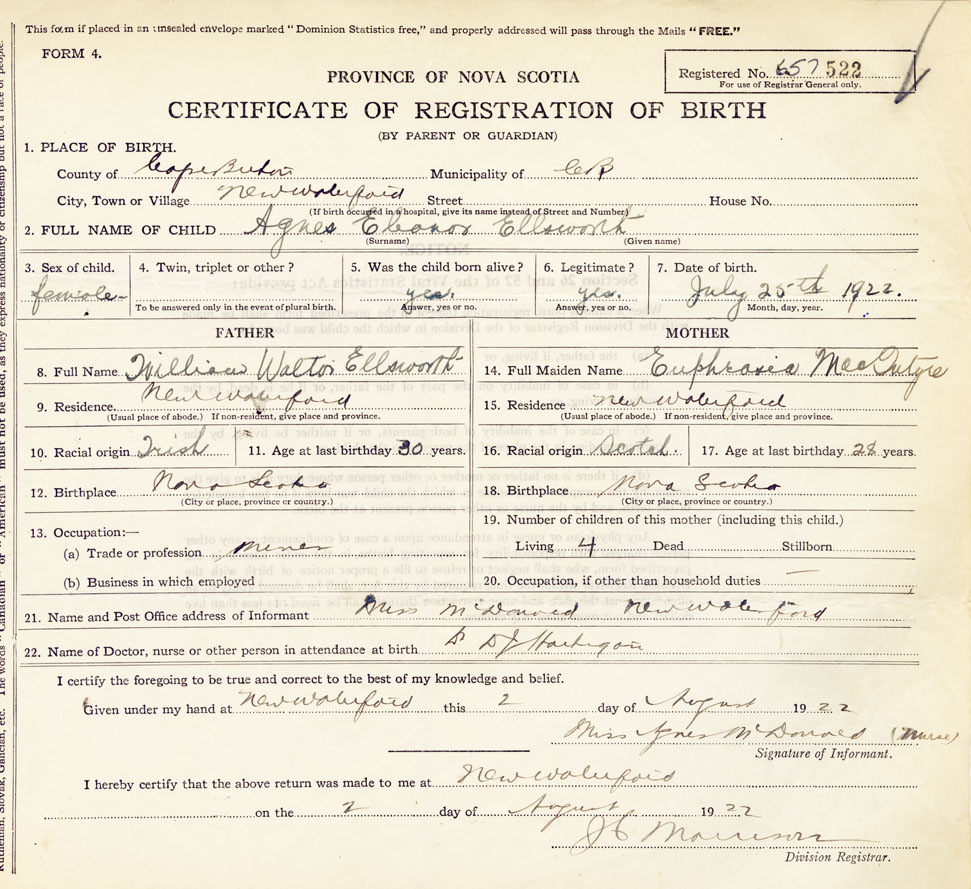 This form if placed in an unsealed envelope marked "Dominion Statistics free," and properly addressed will pass through the Mails "FREE."
FORM 4.
PROVINCE OF NOVA SCOTIA
Registered No. 657 522
For use of Registrar General only.
CERTIFICATE OF REGISTRATION OF BIRTH
(BY PARENT OR GUARDIAN)
1. PLACE OF BIRTH.
County of Cape Breton Municipality of CB
City, Town or Village New Waterford Street House No.
(If birth occurred in a hospital, give its name instead of Street and Number)
2. FULL NAME OF CHILD Agnes Eleanor Ellsworth
(Surname) (Given name)
3. Sex of child. 4. Twin, triplet or other? 5. Was the child born alive? 6. Legitimate? 7. Date of birth.
female yes. yes. July 25th 1922.
To be answered only in the event of plural birth. Answer, yes or no. Answer, yes or no. Month, day, year.
FATHER MOTHER
8. Full Name William Walter Ellsworth 14. Full Maiden Name Euphrasia MacIntyre
9. Residence New Waterford 15. Residence New Waterford
(Usual place of abode.) If non-resident, give place and province. (Usual place of abode.) If non-resident, give place and province.
10. Racial origin Irish 11. Age at last birthday 30 years. 16. Racial origin Scotch. 17. Age at last birthday 28 years.
12. Birthplace Nova Scotia 18. Birthplace Nova Scotia
(City or place, province or country.) (City or place, province or country.)
13. Occupation:— 19. Number of children of this mother (including this child.)
(a) Trade or profession miner Living 4 Dead Stillborn
(b) Business in which employed 20. Occupation, if other than household duties —
21. Name and Post Office address of Informant Miss McDonald New Waterford
22. Name of Doctor, nurse or other person in attendance at birth Dr DJ Hartigan
I certify the foregoing to be true and correct to the best of my knowledge and belief.
Given under my hand at New Waterford this 2 day of August 1922
Miss Agnes McDonald (Nurse)
Signature of Informant.
I hereby certify that the above return was made to me at New Waterford
on the 2 day of August 1922
JC Morrison
Division Registrar.